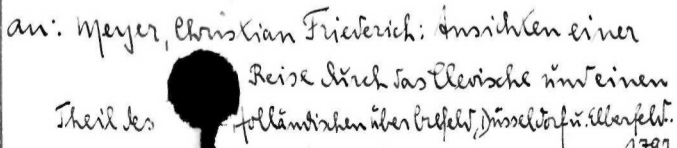 an: Meyer, Christian Friederich: Ansichten einer
Reise durch das Clevische und einen
Theil des Holländischen über Crefeld, Düsseldorf u. Elberfeld.